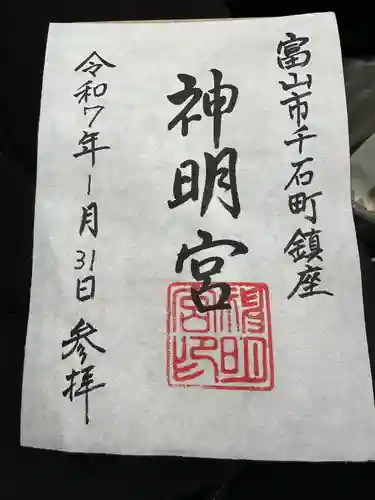 富山市千石町鎮座
神明宮
神明宮印
令和7年1月31日 参拝